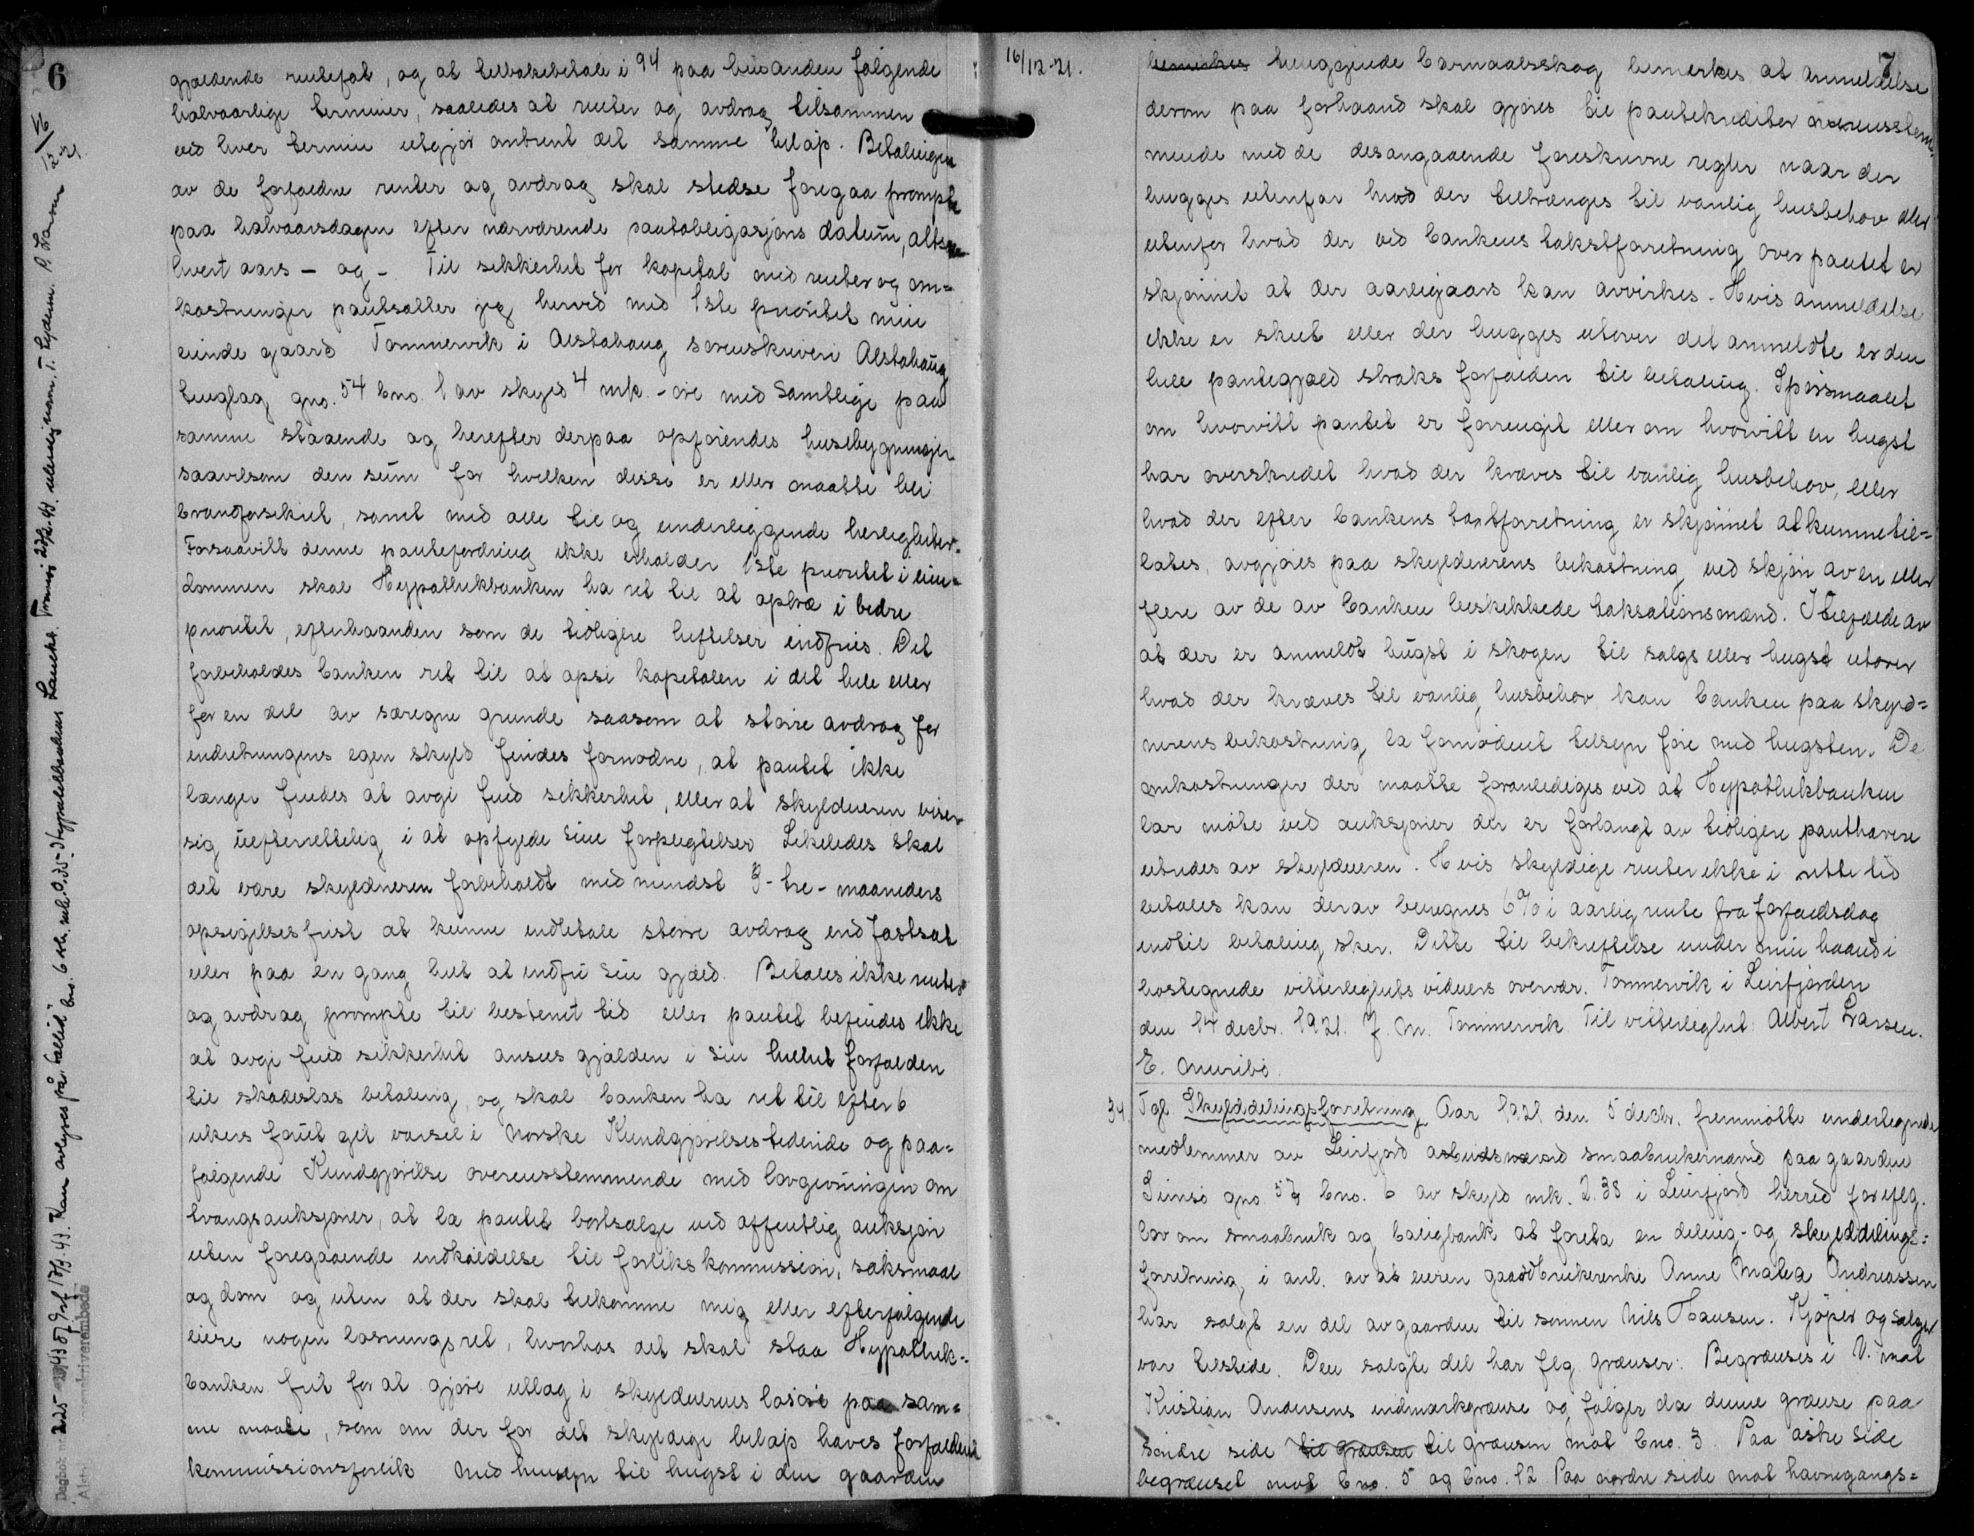 6
gjældende rentefot, og at tilbakebetale i 94 paa hverandre følgende
halvaarlige terminer, saaledes at renter og avdrag tilsammen
ved hver termin utgjør omtrent det samme beløp. Betalingen
av de forfaldne renter og avdrag skal stedse foregaa prompte
paa halvaarsdagen efter nærværende pantobligasjons datum, altsaa
hvert aars – og –. Til sikkerhet for kapital med renter og om=
kostninger pantsætter jeg herved med 1ste prioritet min
eiende gaard Tømmervik i Alstahaug sorenskriveri Alstahaug
tinglag gno. 54 bno. 1 av skyld 4 mk. - øre med samtlige paa
samme staaende og herefter derpaa opførendes husebygninger
saavelsom den sum for hvilken disse er eller maatte bli
brandforsikret, samt med alle til og underliggende herligheter.
Forsaavitt denne pantefordring ikke erholder 1ste prioritet i eien=
dommen skal Hypothekbanken ha ret til at optræ i bedre
prioritet, efterhaanden som de tidligere heftelser indfries. Det
forbeholdes banken ret til at opsi kapitalen i det hele eller
for en del av særegne grunde saasom at større avdrag for
indretningens egen skyld findes fornødne, at pantet ikke
længer findes at avgi fuld sikkerhet, eller at skyldneren viser
sig uefterrettelig i at opfylde sine forpligtelser. Likeledes skal
det være skyldneren forbeholdt med mindst 3 - tre - maaneders
opsigelsesfrist at kunne indbetale større avdrag end fastsat
eller paa en gang helt at indfri sin gjæld. Betales ikke renter
og avdrag prompte til bestemt tid eller pantet befindes ikke
at avgi fuld sikkerhet ansees gjælden i sin helhet forfalden
til skadesløs betaling, og skal banken ha ret til efter 6
ukers forut git varsel i Norske Kundgjørelsestidende og paa=
følgende Kundgjørelse overensstemmende med lovgivningen om
tvangsauksjoner, at la pantet bortsælge ved offentlig auksjon
uten foregaaende indkaldelse til forlikskommission, søksmaal
og dom og uten at der skal tilkomme mig eller efterfølgende
eiere nogen løsningsret, hvorhos det skal staa Hypothek=
banken frit for at gjøre utlæg i skyldnerens løsøre paa sam=
me maate, som om der for det skyldige beløp haves forfaldent
kommissionsforlik. Med hensyn til hugst i den gaarden
16/12-21.
7
bemerkes tilliggende barnaalsskog bemerkes at anmeldelse
derom paa forhaand skal gjøres til pantekreditor overensstem=
mende med de desangaaende foreskrevne regler naar der
hugges utenfor hvad der tiltrænges til vanlig husbehov eller
utenfor hvad der ved bankens takstforretning over pantet er
skjønnet at der aarligaars kan avvirkes. Hvis anmeldelse
ikke er skeet eller der hugges utover det anmeldte er den
hele pantegjæld straks forfalden til betaling. Spørsmaalet
om hvorvitt pantet er forringet eller om hvorvitt en hugst
har overskredet hvad der kræves til vanlig husbehov, eller
hvad der efter bankens takstforretning er skjønnet at kunne til=
lates, avgjøres paa skyldnerens bekostning ved skjøn av en eller
flere av de av banken beskikkede taksationsmænd. I tilfælde av
at der er anmeldt hugst i skogen til salgs eller hugst utover
hvad der kræves til vanlig husbehov kan banken paa skyld=
nerens bekostning la fornødent tilsyn føre med hugsten. De
omkostninger der maatte foranlediges ved at Hypothekbanken
lar møte ved auksjoner der er forlangt av tidligere panthavere
utredes av skyldneren. Hvis skyldige renter ikke i rette tid
betales kan derav beregnes 6 % i aarlig rente fra forfaldsdag
indtil betaling sker. Dette til bekræftelse under min haand i
hostegnede vitterlighets vidners overvær. Tømmervik i Leirfjorden
den 14 decbr. 1921. J. M. Tømmervik. Til vitterlighet: Albert Larsen.
E. Aneribø.
34 Tgl. Skylddelingsforretning Aar 1921 den 5 decbr. fremmøtte undertegnede
medlemmer av Leirfjord arbeidsnævnd smaabrukernævnd paa gaarden
Simsø gno. 57 bno. 6 av skyld mk. 2.38 i Leirfjord herred for iflg.
lov om smaabruk og boligbank at foreta en deling- og skylddelings=
forretning i anl. av at eieren gaardbrukerenke Anne Malea Andreassen
har solgt en del av gaarden til sønnen Nils Hansen. Kjøper og sælger
var tilstede. Den solgte del har flg. grænser: Begrænses i V. mot
Kristian Andersens indmarkgrænse og følger da denne grænse paa
søndre side til grænsen til grænsen mot bno. 3. Paa østre side
begrænset mot bno. 5 og bno. 12. Paa nordre side mot havnegangs=